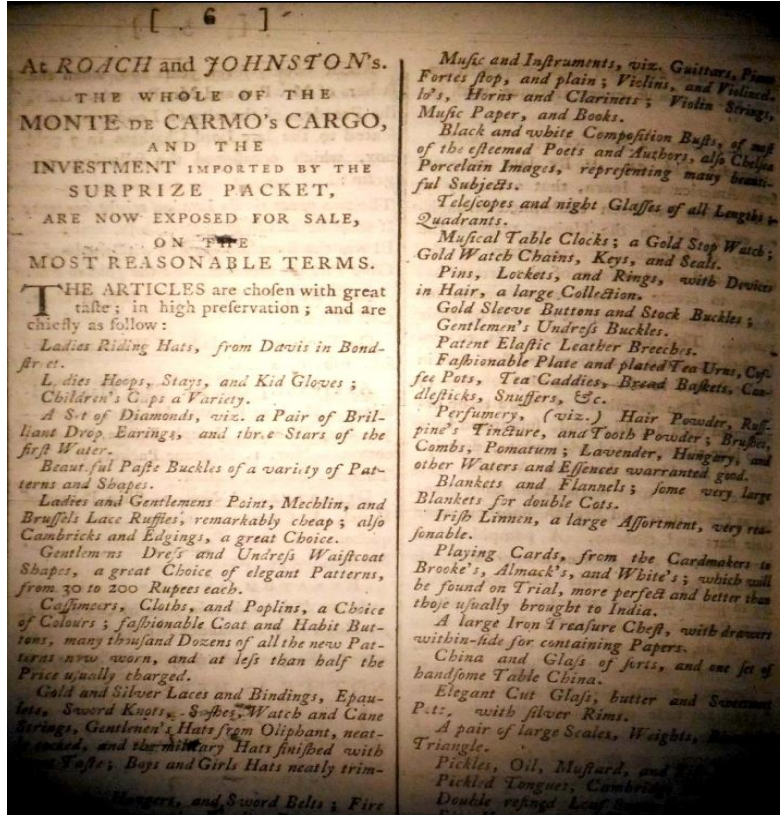 [ 6 ]
At ROACH and JOHNSTON's.
THE WHOLE OF THE
MONTE DE CARMO's CARGO,
AND THE
INVESTMENT IMPORTED BY THE
SURPRIZE PACKET,
ARE NOW EXPOSED FOR SALE,
ON THE
MOST REASONABLE TERMS.
THE ARTICLES are choſen with great
taſte; in high preſervation; and are
chiefly as follow:
Ladies Riding Hats, from Davis in Bond-
ſtreet.
Ladies Hoops, Stays, and Kid Gloves;
Children's Caps a Variety.
A Set of Diamonds, viz. a Pair of Bril-
liant Drop Earings, and three Stars of the
firſt Water.
Beautiful Paſte Buckles of a variety of Pat-
terns and Shapes.
Ladies and Gentlemens Point, Mechlin, and
Bruſſels Lace Ruffles, remarkably cheap; alſo
Cambricks and Edgings, a great Choice.
Gentlemens Dreſs and Undreſs Waiſtcoat
Shapes, a great Choice of elegant Patterns,
from 30 to 200 Rupees each.
Caſſimeers, Cloths, and Poplins, a Choice
of Colours; faſhionable Coat and Habit But-
tons, many thouſand Dozens of all the new Pat-
terns now worn, and at leſs than half the
Price uſually charged.
Gold and Silver Laces and Bindings, Epau-
lets, Sword Knots, Saſhes, Watch and Cane
Strings, Gentlemen's Hats from Oliphant, neat-
ly cocked, and the military Hats finiſhed with
Taſte; Boys and Girls Hats neatly trim-
Hangers, and Sword Belts; Fire
Muſic and Inſtruments, viz. Guittars, Piano
Fortes ſtop, and plain; Violins, and Violincel-
lo's, Horns and Clarinets; Violin Strings,
Muſic Paper, and Books.
Black and white Compoſition Buſts, of moſt
of the eſteemed Poets and Authors, alſo Chelſea
Porcelain Images, repreſenting many beauti-
ful Subjects.
Teleſcopes and night Glaſſes of all Lengths;
Quadrants.
Muſical Table Clocks; a Gold Stop Watch;
Gold Watch Chains, Keys, and Seals.
Pins, Lockets, and Rings, with Devices
in Hair, a large Collection.
Gold Sleeve Buttons and Stock Buckles;
Gentlemen's Undreſs Buckles.
Patent Elaſtic Leather Breeches.
Faſhionable Plate and plated Tea Urns, Cof-
fee Pots, Tea Caddies, Bread Baſkets, Can-
dleſticks, Snuffers, &c.
Perfumery, (viz.) Hair Powder, Ruſ-
pine's Tincture, and Tooth Powder; Bruſhes,
Combs, Pomatum; Lavender, Hungery, and
other Waters and Eſſences warranted good.
Blankets and Flannels; ſome very large
Blankets for double Cots.
Iriſh Linnen, a large Aſſortment, very rea-
ſonable.
Playing Cards, from the Cardmakers to
Brooke's, Almack's, and White's; which will
be found on Trial, more perfect and better than
thoſe uſually brought to India.
A large Iron Treaſure Cheſt, with drawers
within-ſide for containing Papers.
China and Glaſs of ſorts, and one ſet of
handſome Table China.
Elegant Cut Glaſs, butter and Sweetmeat
Potz, with ſilver Rims.
A pair of large Scales, Weights,
Triangle.
Pickles, Oil, Muſtard, and
Pickled Tongues,
Double refined Loaf